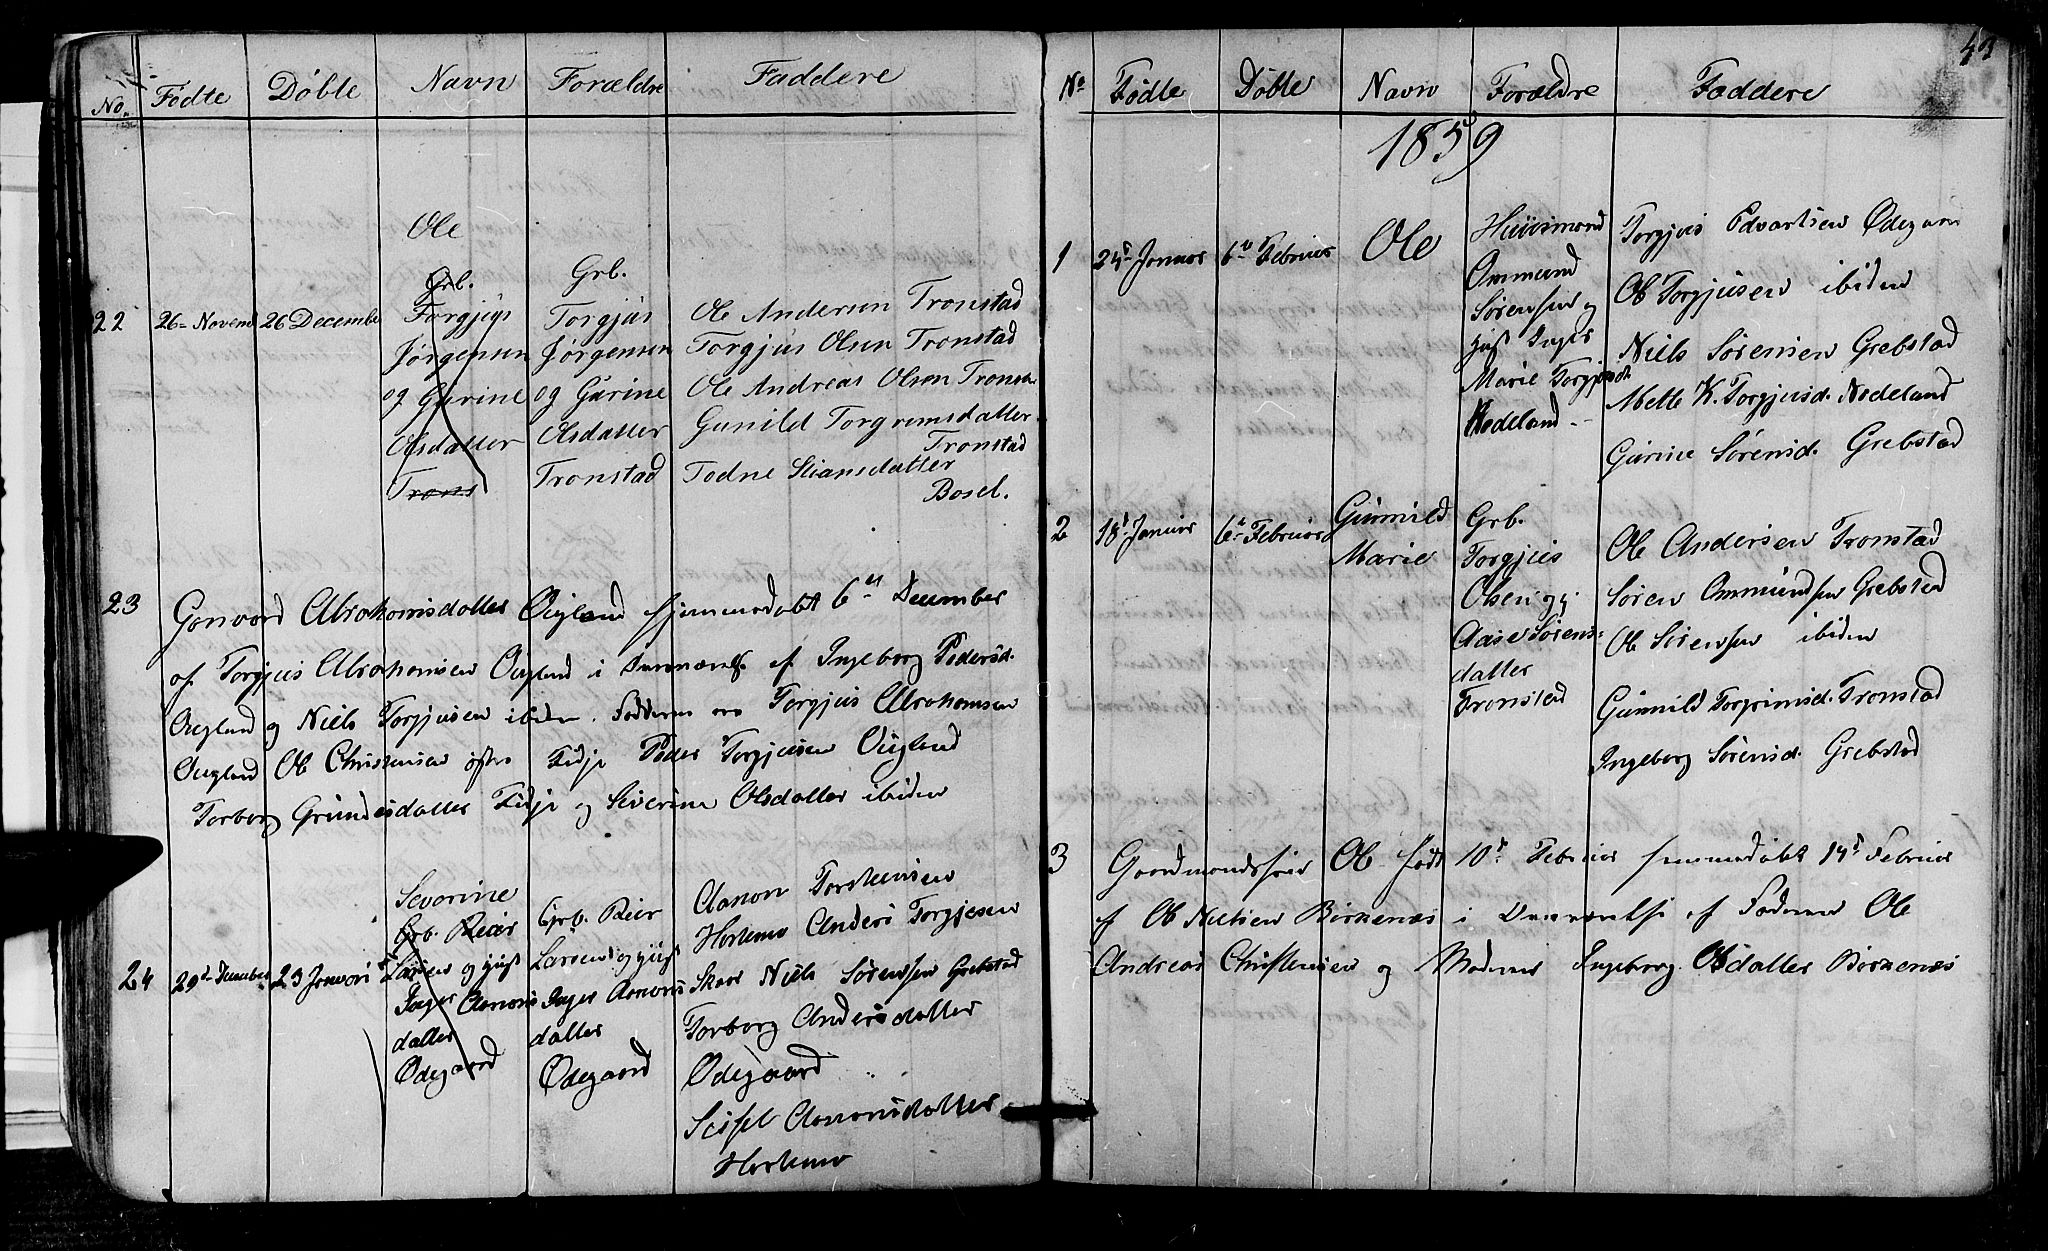 No. Fødte Døbte Navn Forældre Faddere
22 26 Novemb 26 December
Ole
Grb.
Torgjus
Jørgensen
og Gurine
Olsdatter
Trons
Grb.
Torgjus
Jørgensen
og Gurine
Olsdatter
Tronstad
Ole Andersen Tronstad
Torgjus Olsen Tronstad
Ole Andreas Olsen Tronsta
Gunild Torgrimsdatter
Tronstad
Todne Stiansdatter
Bosel.
23 Gonvord Abrahamsdatter Øigland hjemmedøbt 6te December
af Torgjus Abrahamsen Øigland i af Ingeborg Pedersd.
Øigland og Niels Torgjusen ibiden. Fadderne ere Torgjus Abrahamsen
Øigland Ole Christensen østre Fidje Peder Torgjusen Øigland
Torborg Gundersdatter Fidje og Severine Olsdatter ibiden
24 29de December 23 Januari
Severine
Grb. Reier
Larsen og hust
Inger Aanons
datter
Ødegaard
Grb. Reier
Larsen og hust
Inger Aanons
datter
Ødegaard
Aanon Torstensen
Hortemo Anders Torgjesen
Niels Sørensen Grebstad
Torborg Andersdatter
Ødegaard
Sissel Aanonsdatter
Hortemo
43
No Fødte Døbte Navn Forældre Faddere
1859
1 24 Januar 6te Februar Ole
Huusmand
Ommund
Sørensen og
hust Inger
Marie Torgjusdt
Nodeland
Torgjus Edvartsen Ødegaar
Ole Torgjusen ibiden
Niels Sørensen Grebstad
Mette K. Torgjusd. Nodeland
Gurine Sørensd. Grebstad
2 18 Januar 6te Februar
Gunnild
Marie
Grb.
Torgjus
Olsen og
Aase Sørens-
datter
Tronstad
Ole Andersen Tronstad
Søren Ommundsen Grebstad
Ole Sørensen ibiden
Gunnild Torgrimsd. Tronstad
Ingeborg Sørensd. Grebstad
3 Gaardmandssøn Ole født 10 Februar hjemmedøbt 14 Februar
af Ole Nielsen Birkenæs i Overværelse af Faderen Ole
Andreas Christensen og Moderen Ingeborg Olsdatter Birkenæs